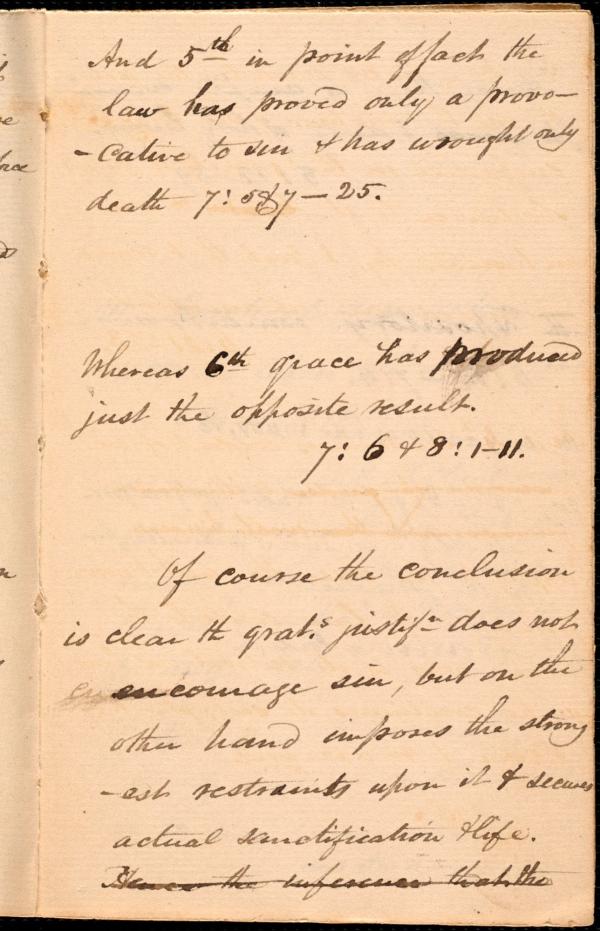 And 5th in point of fact the
law has proved only a provo-
-cative to sin & has wrought only
death 7: 5 & 7-25.
Whereas 6th grace has produced
just the opposite result.
7: 6 & 8: 1-11.
Of course the conclusion
is clear th grat.s justifn does not
encourage sin, but on the
other hand imposes the strong
-est restraints upon it & secures
actual sanctification & life.
Hence the inference that the